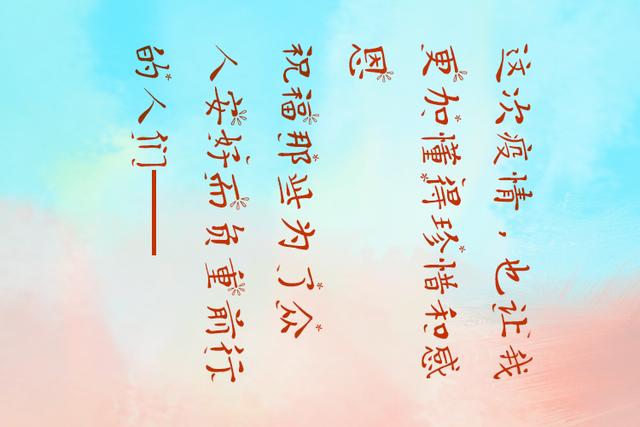 这次疫情，也让我
更加懂得珍惜和感
恩
祝福那些为了众
人安好而负重前行
的人们——